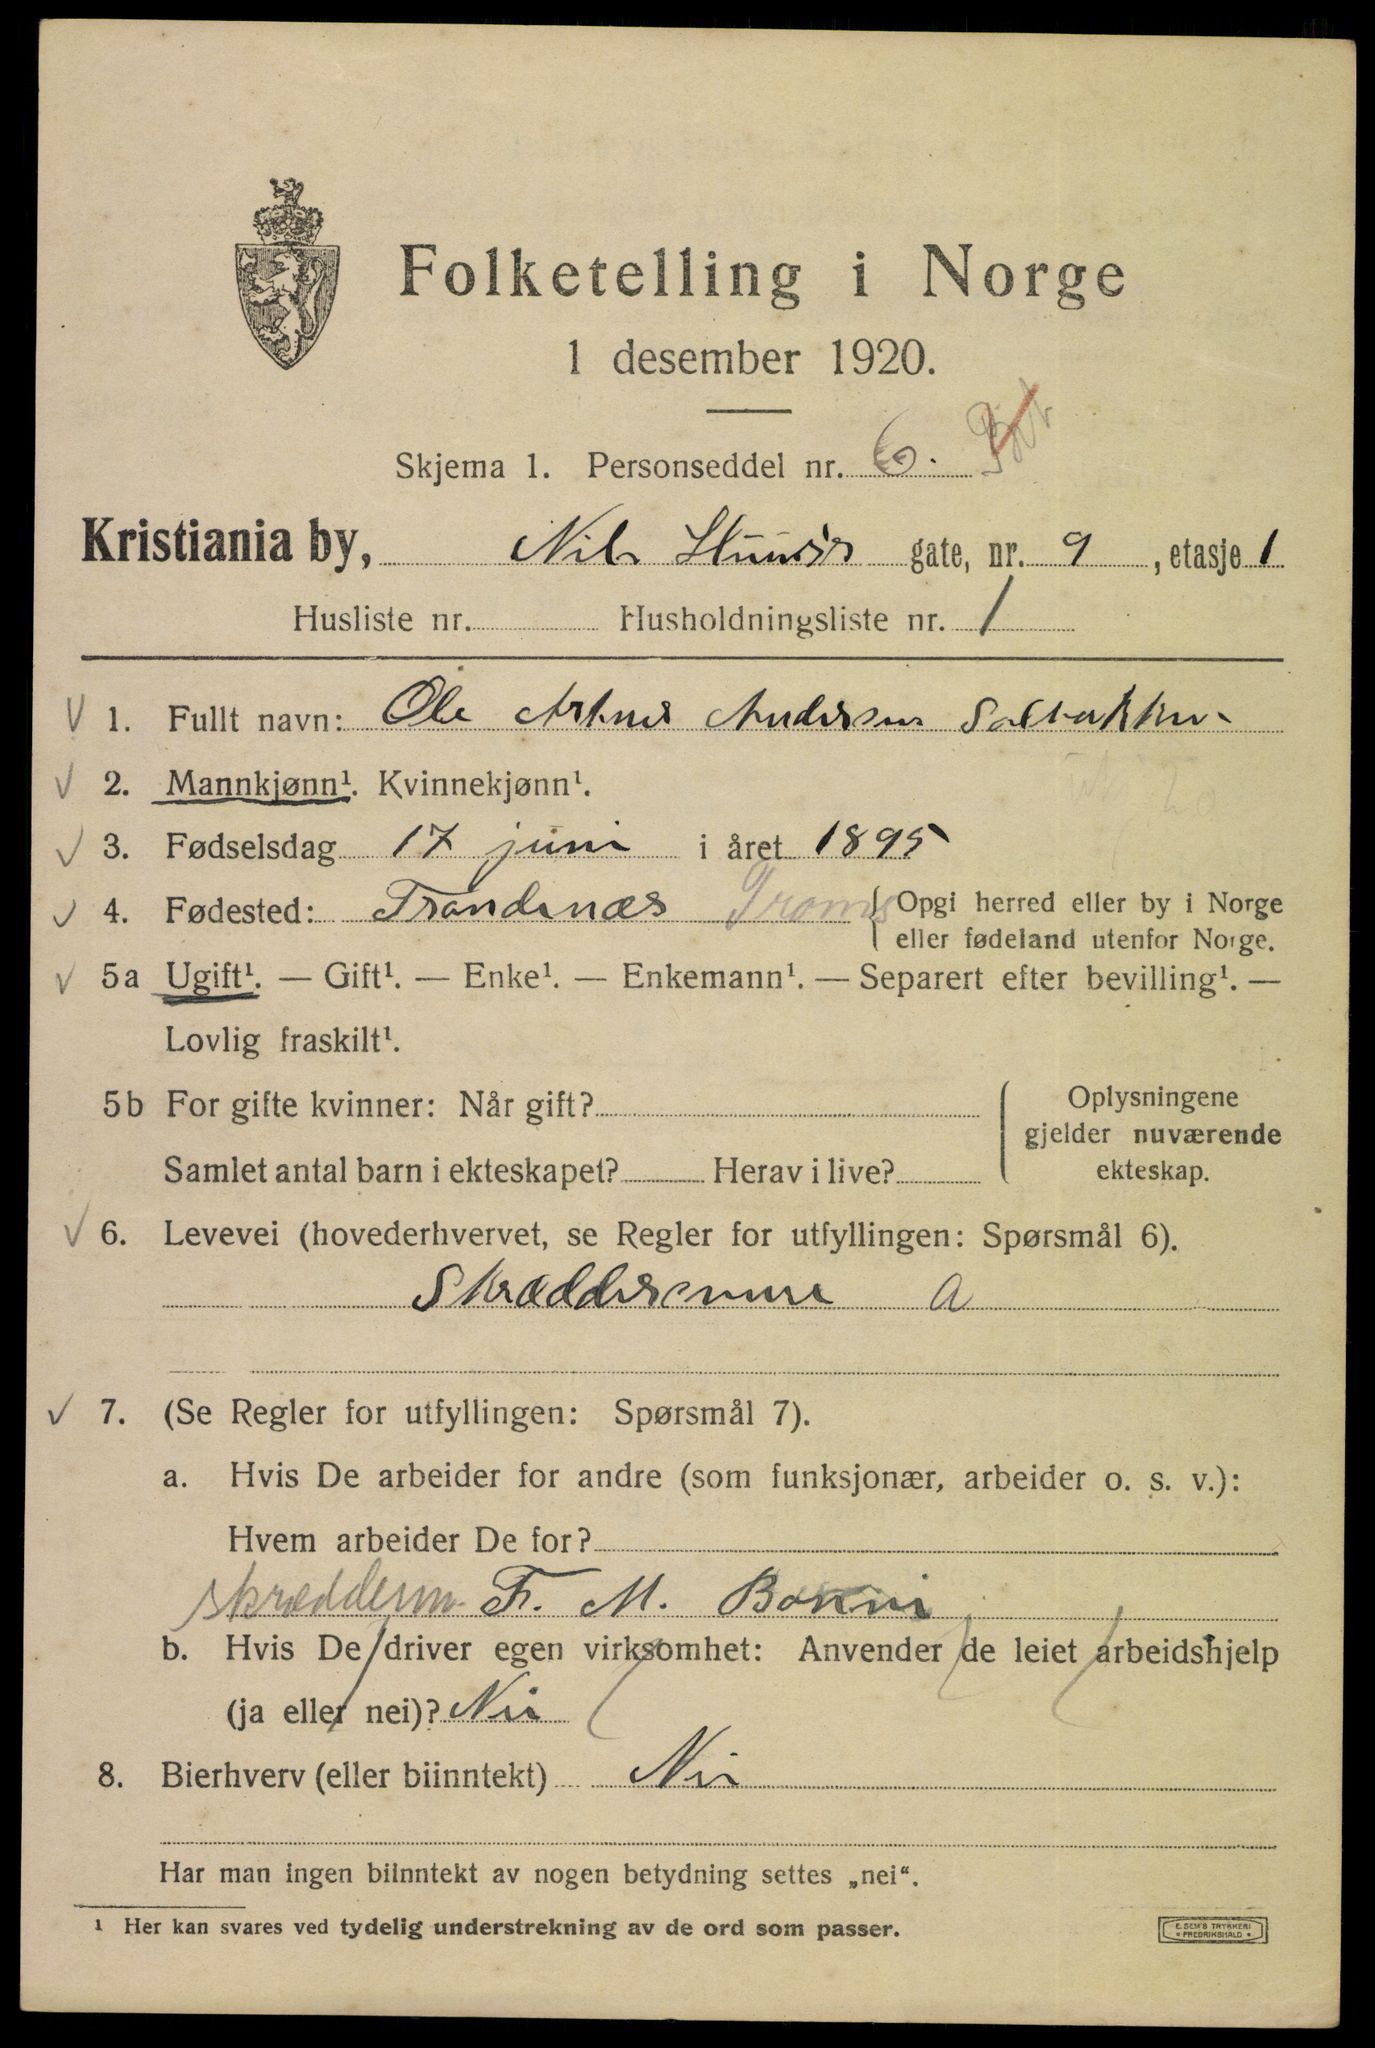 Folketelling i Norge
1 desember 1920.
Skjema 1. Personseddel nr. 6.
Kristiania by, Nils Huus's gate, nr. 9, etasje 1
Husliste nr. Husholdningsliste nr. 1
1. Fullt navn: Ole Arthur Andersen Solbakken
2. Mannkjønn¹. Kvinnekjønn¹.
3. Fødselsdag 17 juni i året 1895
4. Fødested: Trondenæs Troms { Opgi herred eller by i Norge
eller fødeland utenfor Norge.
5a Ugift¹. — Gift¹. — Enke¹. — Enkemann¹. — Separert efter bevilling¹. —
Lovlig fraskilt¹.
5b For gifte kvinner: Når gift?
Samlet antal barn i ekteskapet? Herav i live?
Oplysningene
gjelder nuværende
ekteskap.
6. Levevei (hovederhvervet, se Regler for utfyllingen: Spørsmål 6).
Skræddersvenn a
7. (Se Regler for utfyllingen: Spørsmål 7).
a. Hvis De arbeider for andre (som funksjonær, arbeider o. s. v.):
Hvem arbeider De for?
skrædderm. Fr. M. Bonni
b. Hvis De driver egen virksomhet: Anvender de leiet arbeidshjelp
(ja eller nei)? Nei
8. Bierhverv (eller biinntekt) Nei
Har man ingen biinntekt av nogen betydning settes „nei“.
¹ Her kan svares ved tydelig understrekning av de ord som passer.
E. SEM'S TRYKKERI
FREDRIKSHALD